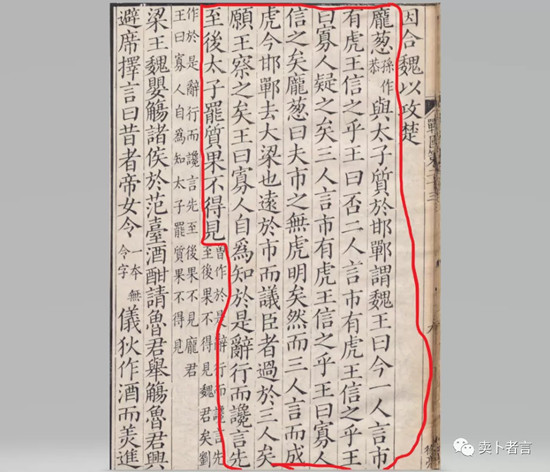 因合魏以攻楚
龐葱孫作恭與太子質於邯鄲謂魏王曰今一人言市
有虎王信之乎王曰否二人言市有虎王信之乎王
曰寡人疑之矣三人言市有虎王信之乎王曰寡人
信之矣龐葱曰夫市之無虎明矣然而三人言而成
虎今邯鄲去大梁也遠於市而議臣者過於三人矣
願王察之矣王曰寡人自爲知於是辭行而讒言先
至後太子罷質果不得見
曾作於是辭行而讒言先
至後果不得見魏君矣劉
作於是辭行而讒言先至後果不見龐君
王曰寡人自爲知太子罷質果不得見
梁王魏嬰觴諸侯於范臺酒酣請魯君舉觴魯君興
避席擇言曰昔者帝女令一本無令字儀狄作酒而美進
卖卜者言